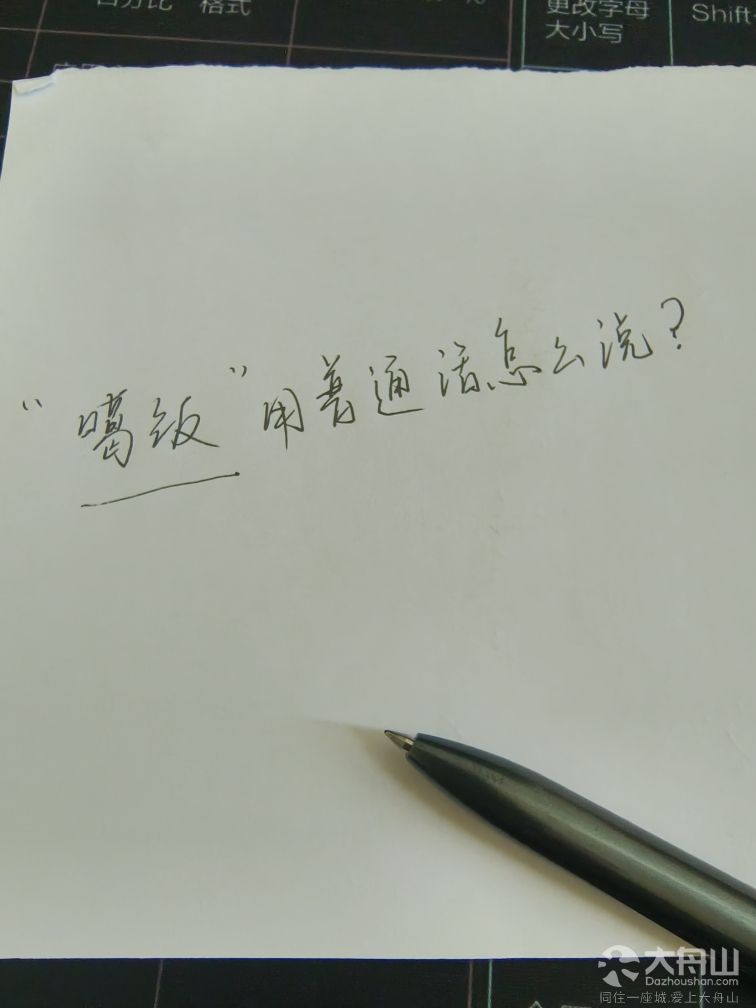 百分比 格式
更改字母
大小写
Shift-
“噶饭”用普通话怎么说？
大舟山
Dazhoushan.com
同住一座城,爱上大舟山